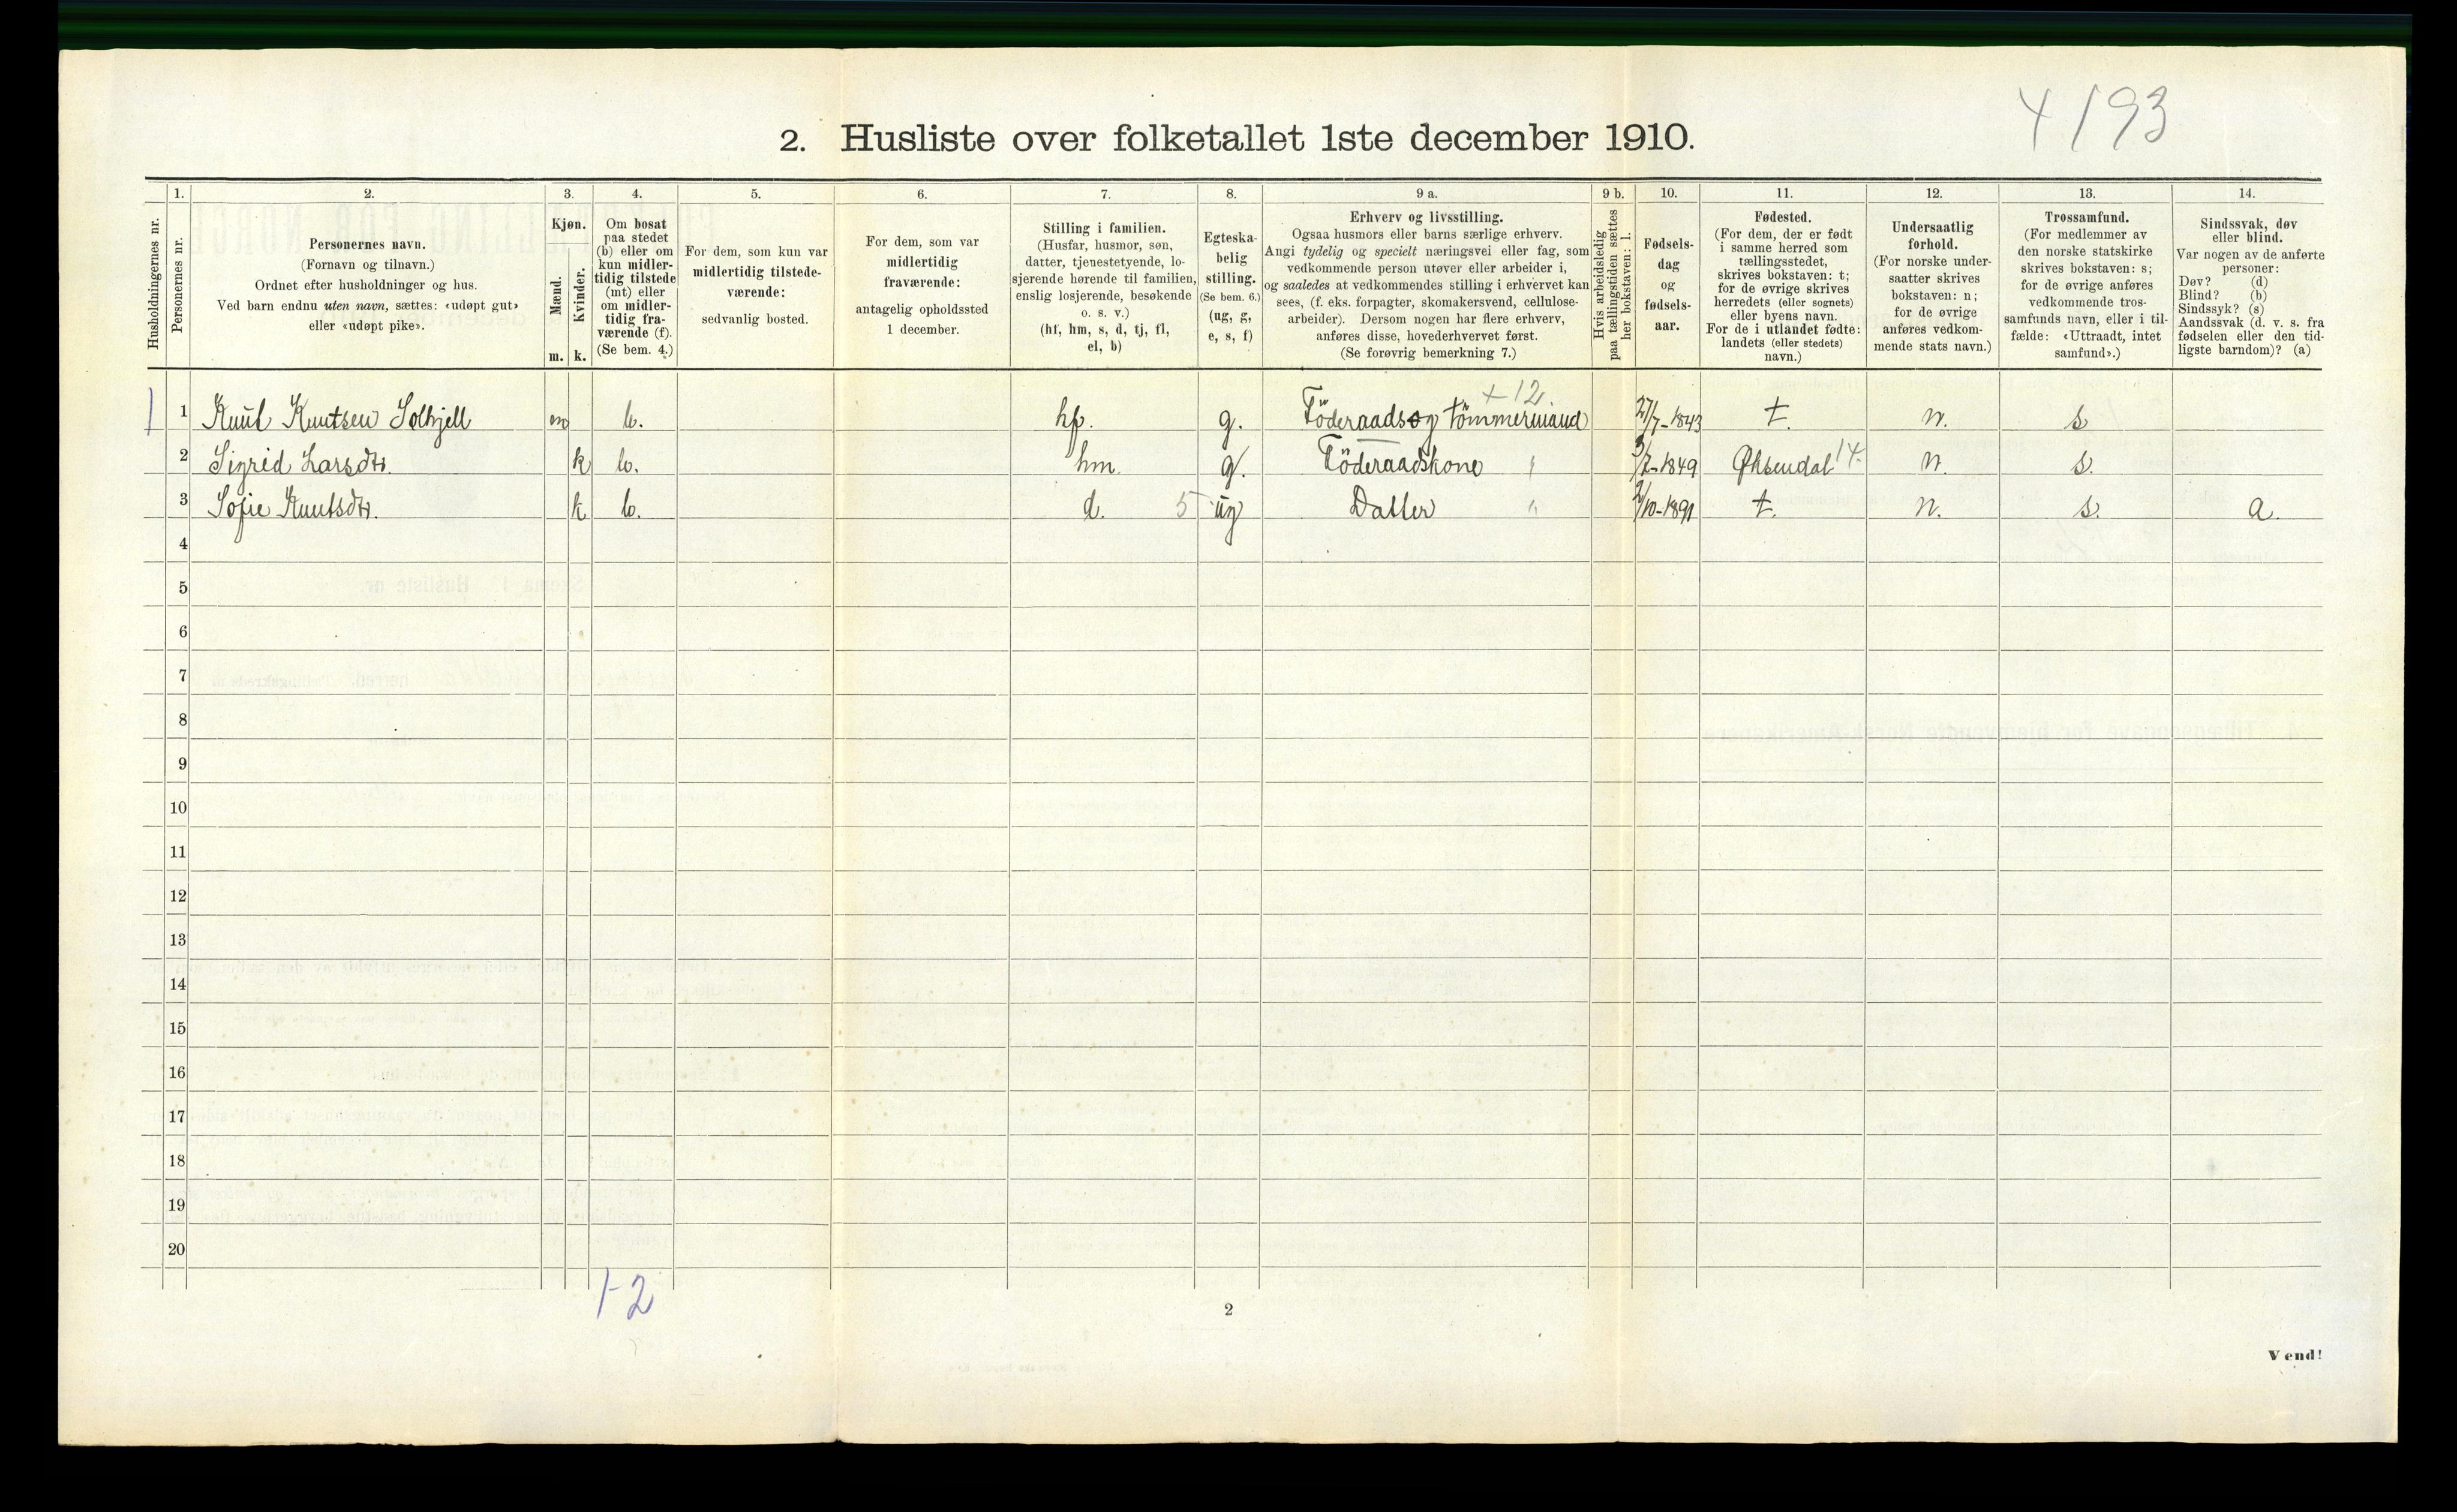 4193
2. Husliste over folketallet 1ste december 1910.
Husholdningernes nr.
1.
Personernes nr.
2.
Personernes navn.
(Fornavn og tilnavn.)
Ordnet efter husholdninger og hus.
Ved barn endnu uten navn, sættes: «udøpt gut»
eller «udøpt pike».
3.
Kjøn.
Mænd.
Kvinder.
m. k.
4.
Om bosat
paa stedet
(b) eller om
kun midler-
tidig tilstede
(mt) eller
om midler-
tidig fra-
værende (f).
(Se bem. 4.)
5.
For dem, som kun var
midlertidig tilstede-
værende:
sedvanlig bosted.
6.
For dem, som var
midlertidig
fraværende:
antagelig opholdssted
1 december.
7.
Stilling i familien.
(Husfar, husmor, søn,
datter, tjenestetyende, lo-
sjerende hørende til familien,
enslig losjerende, besøkende
o. s. v.)
(hf, hm, s, d, tj, fl,
el, b)
8.
Egteska-
belig
stilling.
(Se bem. 6.)
(ug, g,
e, s, f)
9 a.
Erhverv og livsstilling.
Ogsaa husmors eller barns særlige erhverv.
Angi tydelig og specielt næringsvei eller fag, som
vedkommende person utøver eller arbeider i,
og saaledes at vedkommendes stilling i erhvervet kan
sees, (f. eks. forpagter, skomakersvend, cellulose-
arbeider). Dersom nogen har flere erhverv,
anføres disse, hovederhvervet først.
(Se forøvrig bemerkning 7.)
9 b.
Hvis arbeidsledig
paa tællingstiden sættes
her bokstaven: l.
10.
Fødsels-
dag
og
fødsels-
aar.
11.
Fødested.
(For dem, der er født
i samme herred som
tællingsstedet,
skrives bokstaven: t;
for de øvrige skrives
herredets (eller sognets)
eller byens navn.
For de i utlandet fødte:
landets (eller stedets)
navn.)
12.
Undersaatlig
forhold.
(For norske under-
saatter skrives
bokstaven: n;
for de øvrige
anføres vedkom-
mende stats navn.)
13.
Trossamfund.
(For medlemmer av
den norske statskirke
skrives bokstaven: s;
for de øvrige anføres
vedkommende tros-
samfunds navn, eller i til-
fælde: «Uttraadt, intet
samfund».)
14.
Sindssvak, døv
eller blind.
Var nogen av de anførte
personer:
Døv? (d)
Blind? (b)
Sindssyk? (s)
Aandssvak (d. v. s. fra
fødselen eller den tid-
ligste barndom)? (a)
+12.
1 1 Knut Knutsen Solhjell m b. hf. g. Föderaads og tömmermand 27/7-1843 t. n. s
2 Sigrid Larsdtr. k b. hm. g. Föderaadskone 3/7-1849 Øksendal 14. n. s.
3 Sofie Knutsdtr. k b. d. 5 ug Datter 2/10-1891 t. n. s. a.
4
5
6
7
8
9
10
11
12
13
14
15
16
17
18
19
20
1-2
2
Vend!